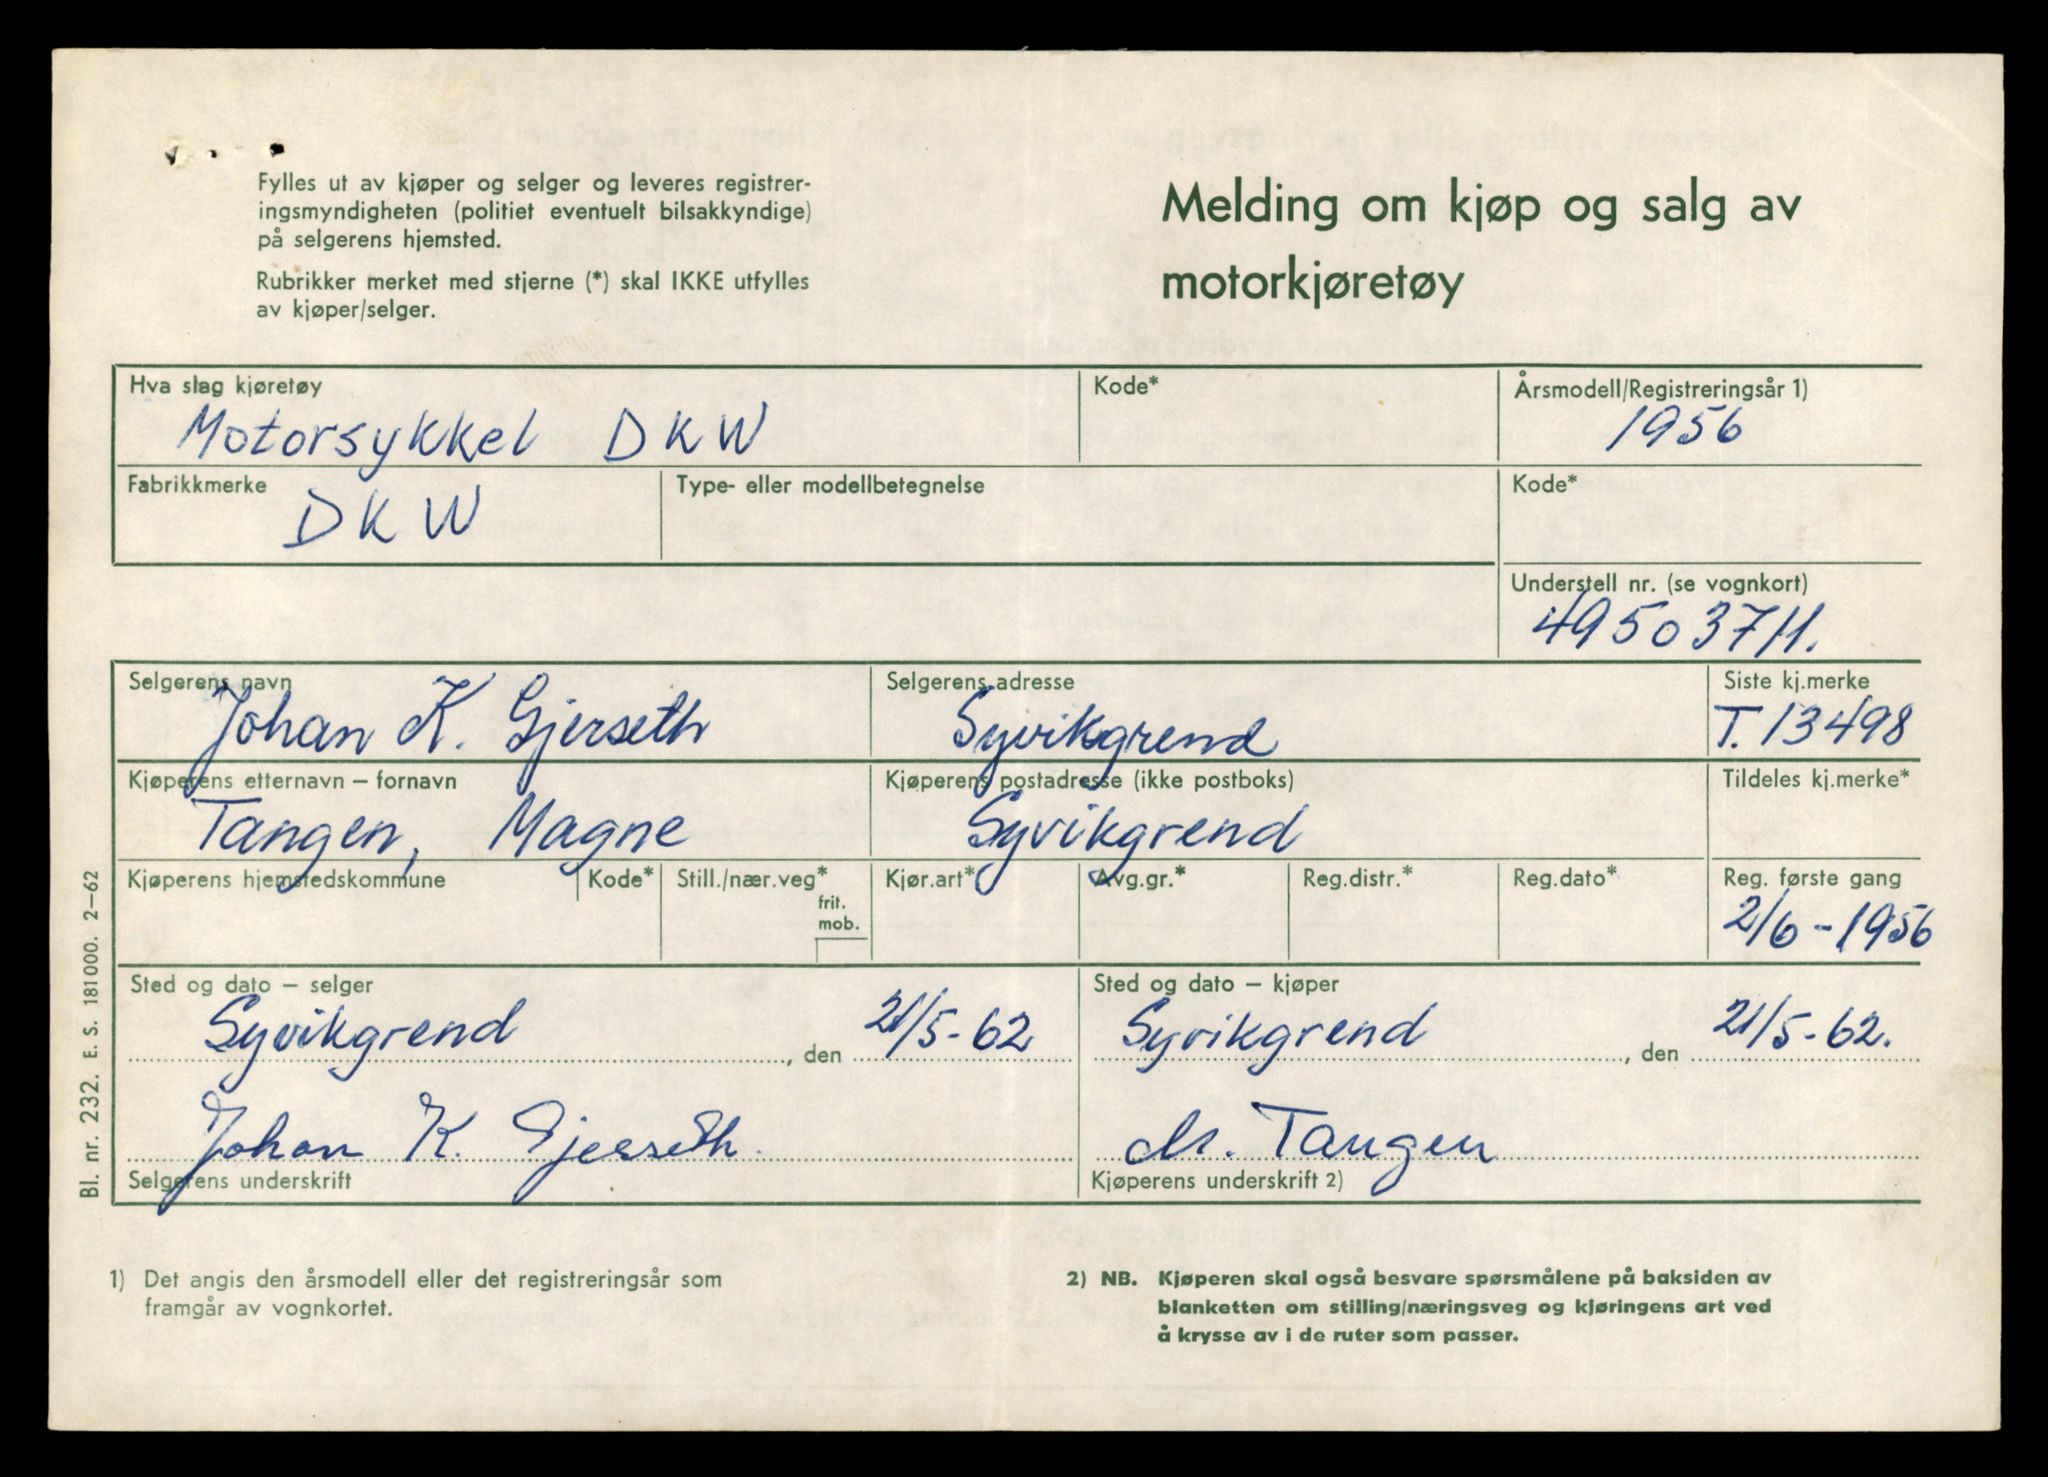 Fylles ut av kjøper og selger og leveres registrer-
ingsmyndigheten (politiet eventuelt bilsakkyndige)
på selgerens hjemsted.
Rubrikker merket med stjerne (*) skal IKKE utfylles
av kjøper/selger.
Melding om kjøp og salg av
motorkjøretøy
Hva slag kjøretøy
Kode*
Årsmodell/Registreringsår 1)
Motorsykkel DKW
1956
Fabrikkmerke
Type- eller modellbetegnelse
Kode*
DKW
Understell nr. (se vognkort)
49503711.
Selgerens navn
Selgerens adresse
Siste kj.merke
Johan K. Gjerseth
Syvikgrend
T. 13498
Kjøperens etternavn – fornavn
Kjøperens postadresse (ikke postboks)
Tildeles kj.merke*
Tangen, Magne
Syvikgrend
Kjøperens hjemstedskommune
Kode*
Still./nær.veg*
frit.
mob.
Kjør.art*
Avg.gr.*
Reg.distr.*
Reg.dato*
Reg. første gang
2/6-1956
Sted og dato – selger
Sted og dato – kjøper
Syvikgrend, den 21/5-62
Syvikgrend, den 21/5-62.
Johan K. Gjerseth.
M. Tangen
Selgerens underskrift
Kjøperens underskrift 2)
Bl. nr. 232. E. S. 181000. 2–62
1) Det angis den årsmodell eller det registreringsår som
framgår av vognkortet.
2) NB. Kjøperen skal også besvare spørsmålene på baksiden av
blanketten om stilling/næringsveg og kjøringens art ved
å krysse av i de ruter som passer.